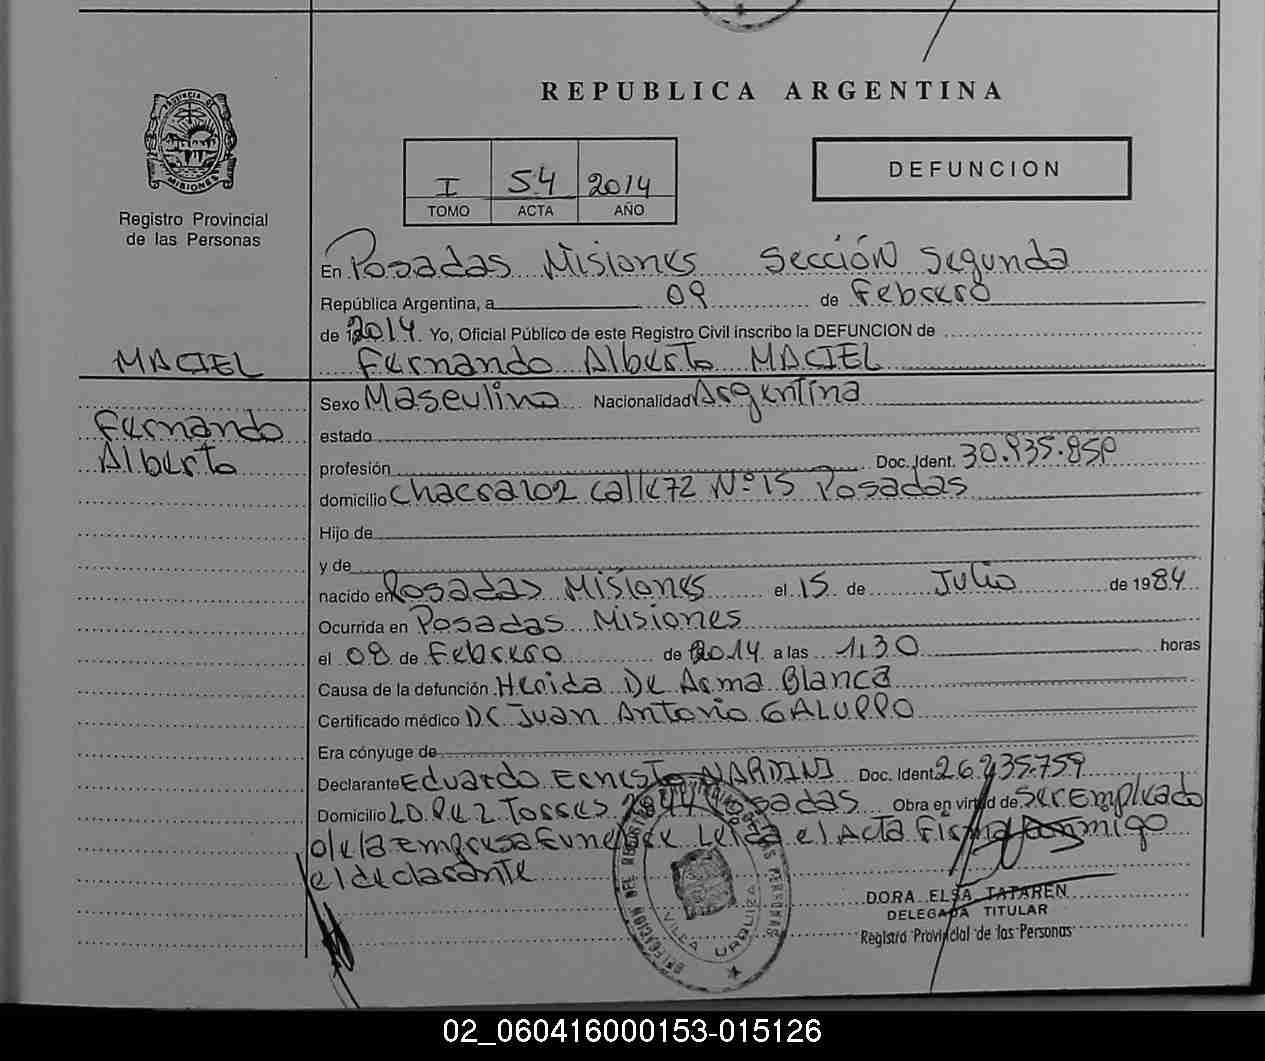 REPUBLICA ARGENTINA
PROVINCIA DE MISIONES
Registro Provincial
de las Personas
I 54 2014
TOMO ACTA AÑO
DEFUNCION
En Posadas Misiones Sección Segunda
República Argentina, a 09 de Febrero
de 2014. Yo, Oficial Público de este Registro Civil inscribo la DEFUNCION de
MACIEL
Fernando Alberto MACIEL
Fernando
Alberto
Sexo Masculino Nacionalidad Argentina
estado
profesión Doc. Ident. 30.935.850
domicilio chacra 102 calle 72 Nº 15 Posadas
Hijo de
y de
nacido en Posadas Misiones el 15 de Julio de 1984
Ocurrida en Posadas Misiones
el 08 de Febrero de 2014 a las 1,30 horas
Causa de la defunción Herida De Arma Blanca
Certificado médico Dr Juan Antonio GALUPPO
Era cónyuge de
Declarante Eduardo Ernesto NARDINI Doc. Ident. 26.235.759
Domicilio LOPEZ Torres 2844 Posadas Obra en virtud de ser Empleado
de la Empresa Funebre Leida el Acta Firma conmigo
el declarante
DELEGACION DEL REGISTRO PROVINCIAL DE LAS PERSONAS
VILLA URQUIZA
DORA ELSA TATAREN
DELEGADA TITULAR
Registro Provincial de las Personas
02_060416000153-015126